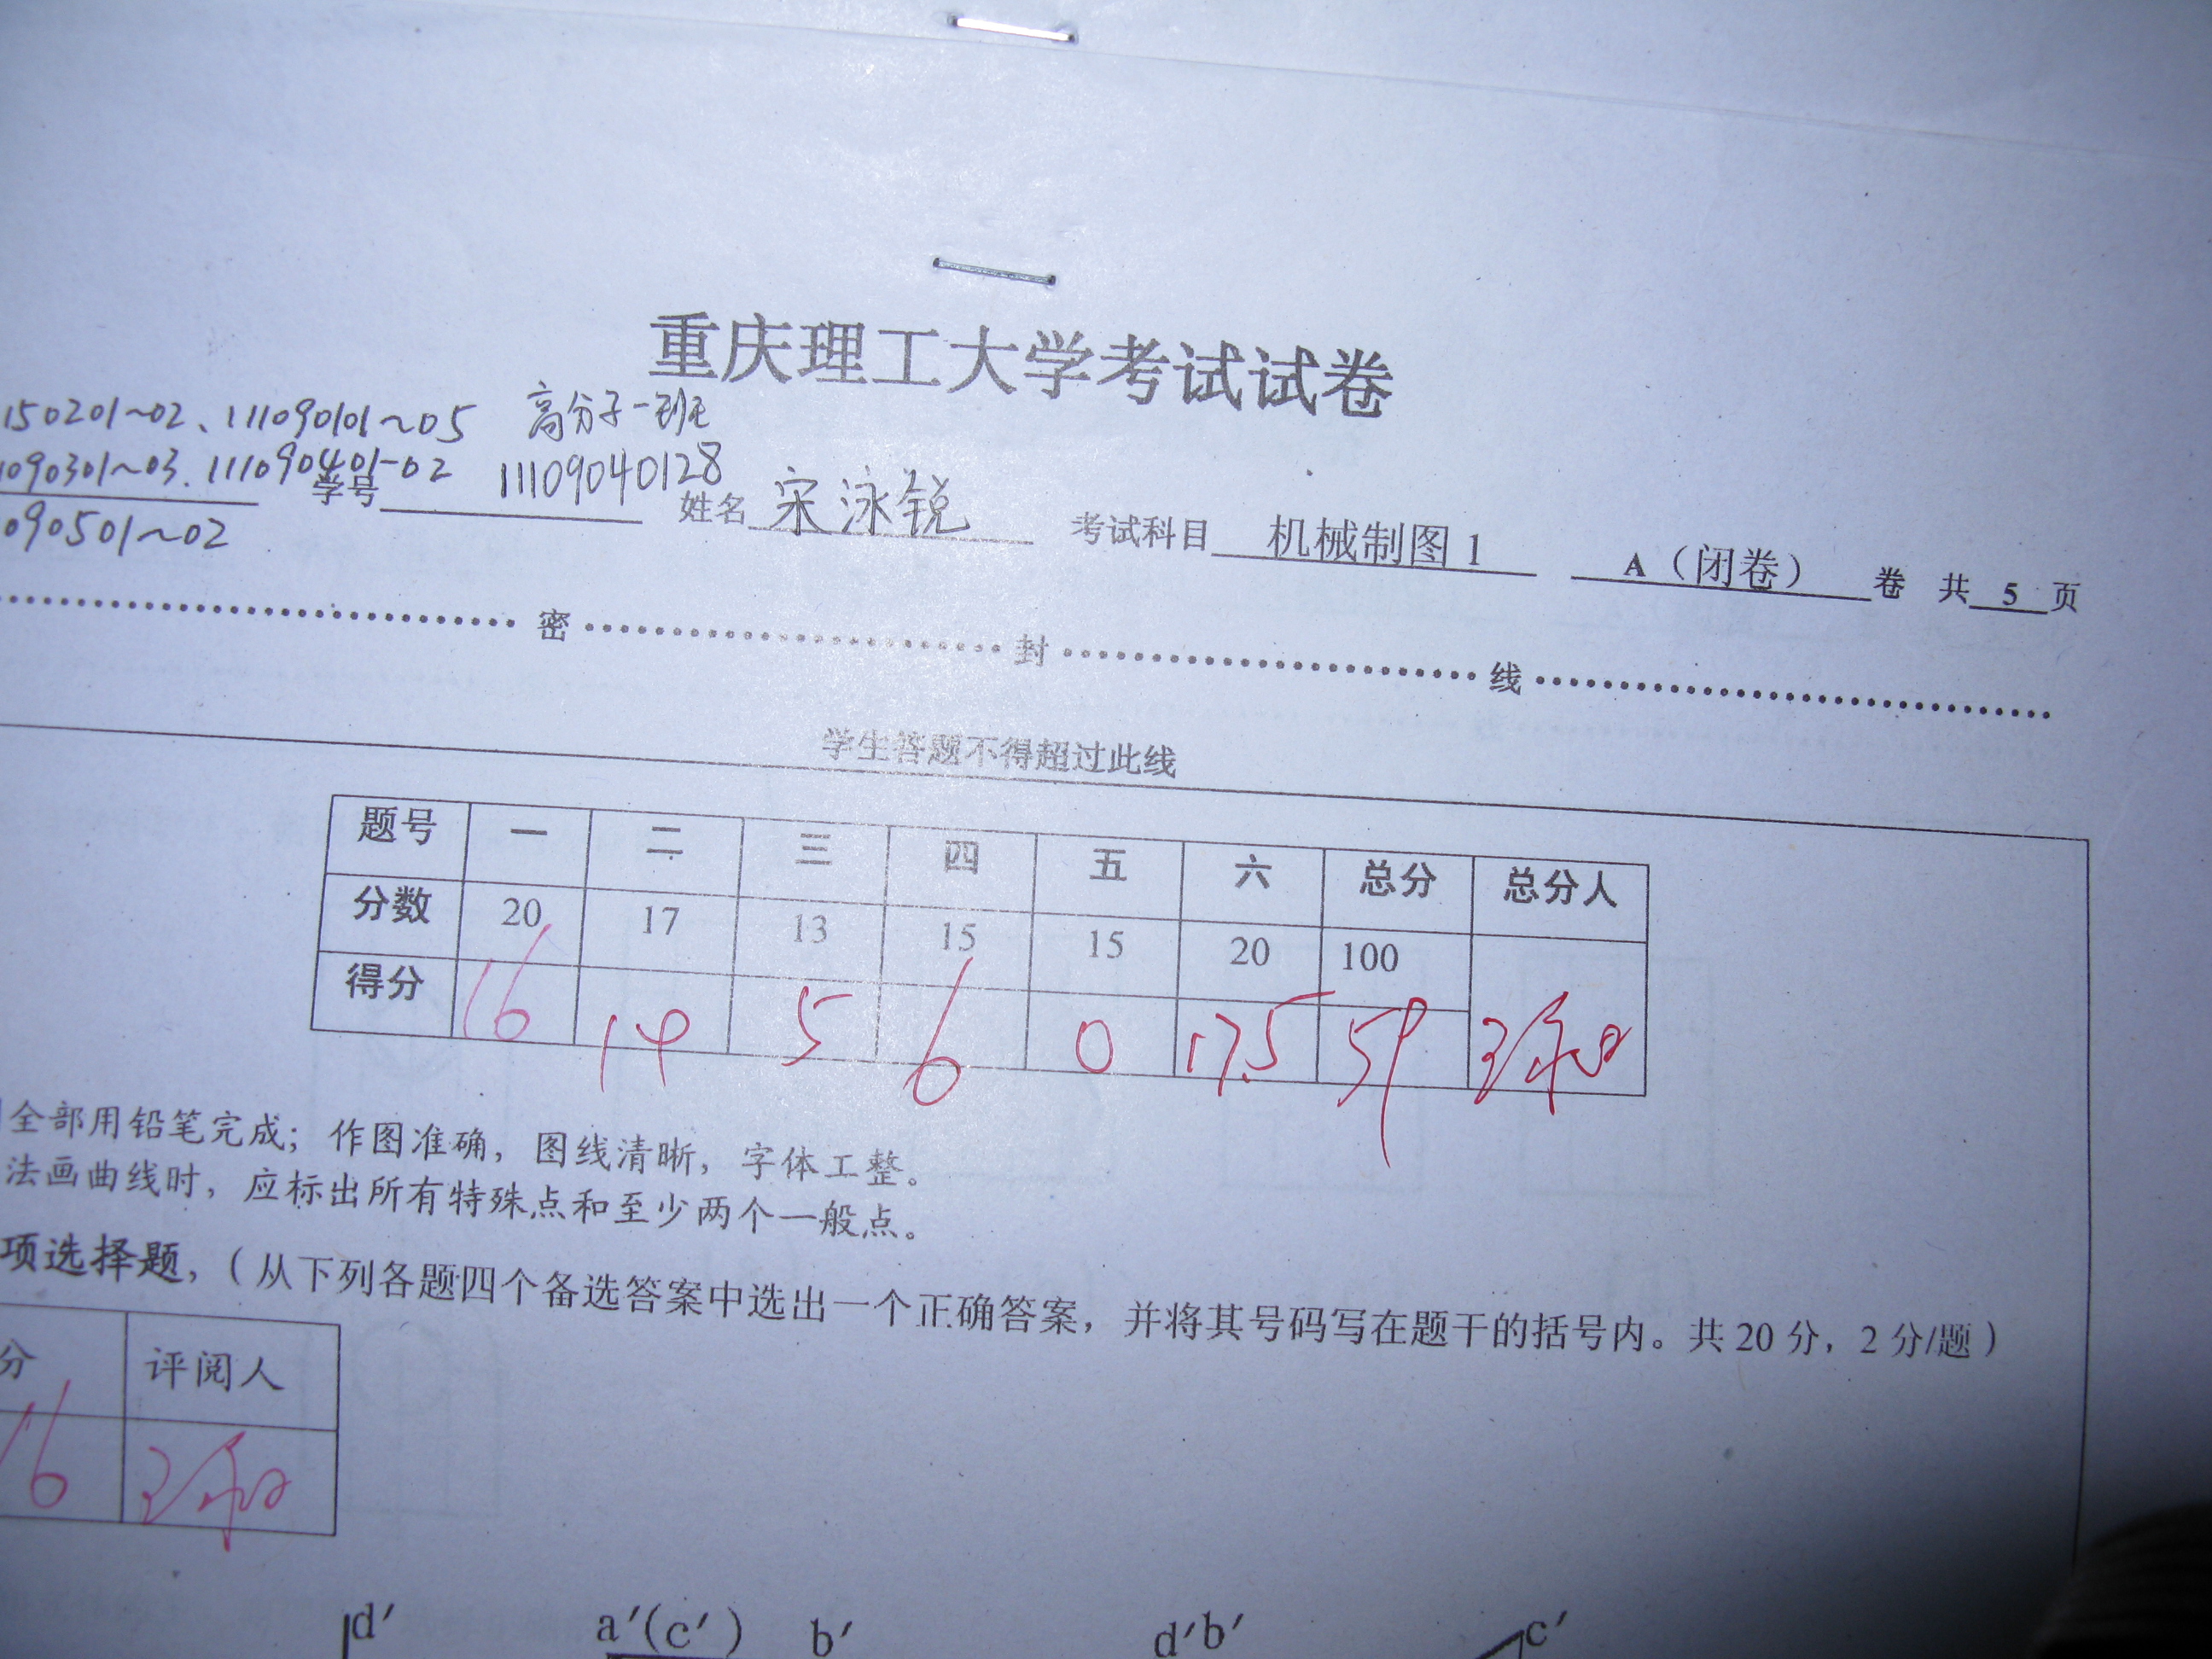 重庆理工大学考试试卷
150201~02、11090101~05 高分子一班
090301~03.111090401-02 学号 11109040128 姓名 宋泳锐 考试科目 机械制图1 A（闭卷） 卷 共 5 页
090501~02
密 封 线
学生答题不得超过此线
题号 一 二 三 四 五 六 总分 总分人
分数 20 17 13 15 15 20 100
得分 16 14 5 6 0 17.5 59
全部用铅笔完成；作图准确，图线清晰，字体工整。
法画曲线时，应标出所有特殊点和至少两个一般点。
项选择题，（从下列各题四个备选答案中选出一个正确答案，并将其号码写在题干的括号内。共20分，2分/题）
分 评阅人
16
d′ a′(c′) b′ d′b′ c′